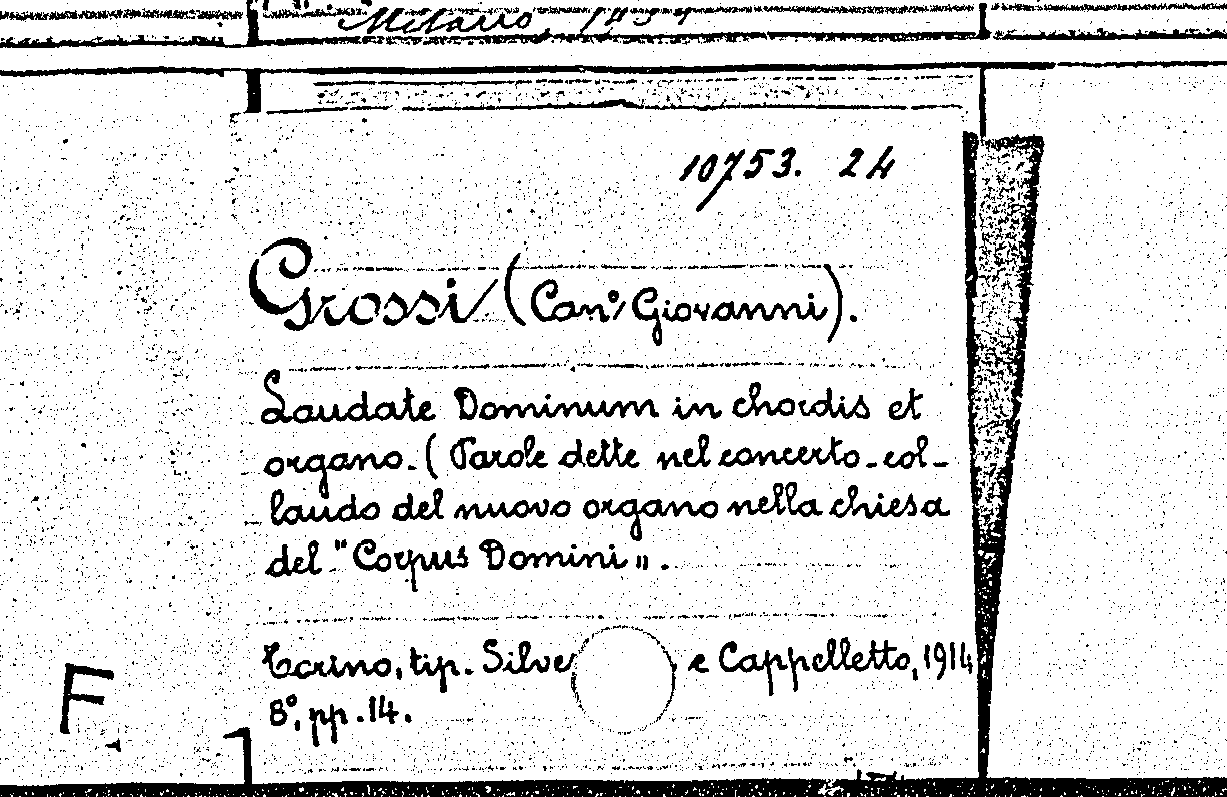 Milano,
10753. 24
Grossi (Can.º Giovanni).
Laudate Dominum in chordis et
organo. (Parole dette nel concerto-col-
laudo del nuovo organo nella chiesa
del "Corpus Domini".
Torino, tip. Silve e Cappelletto, 1914
8º, pp. 14.
F.